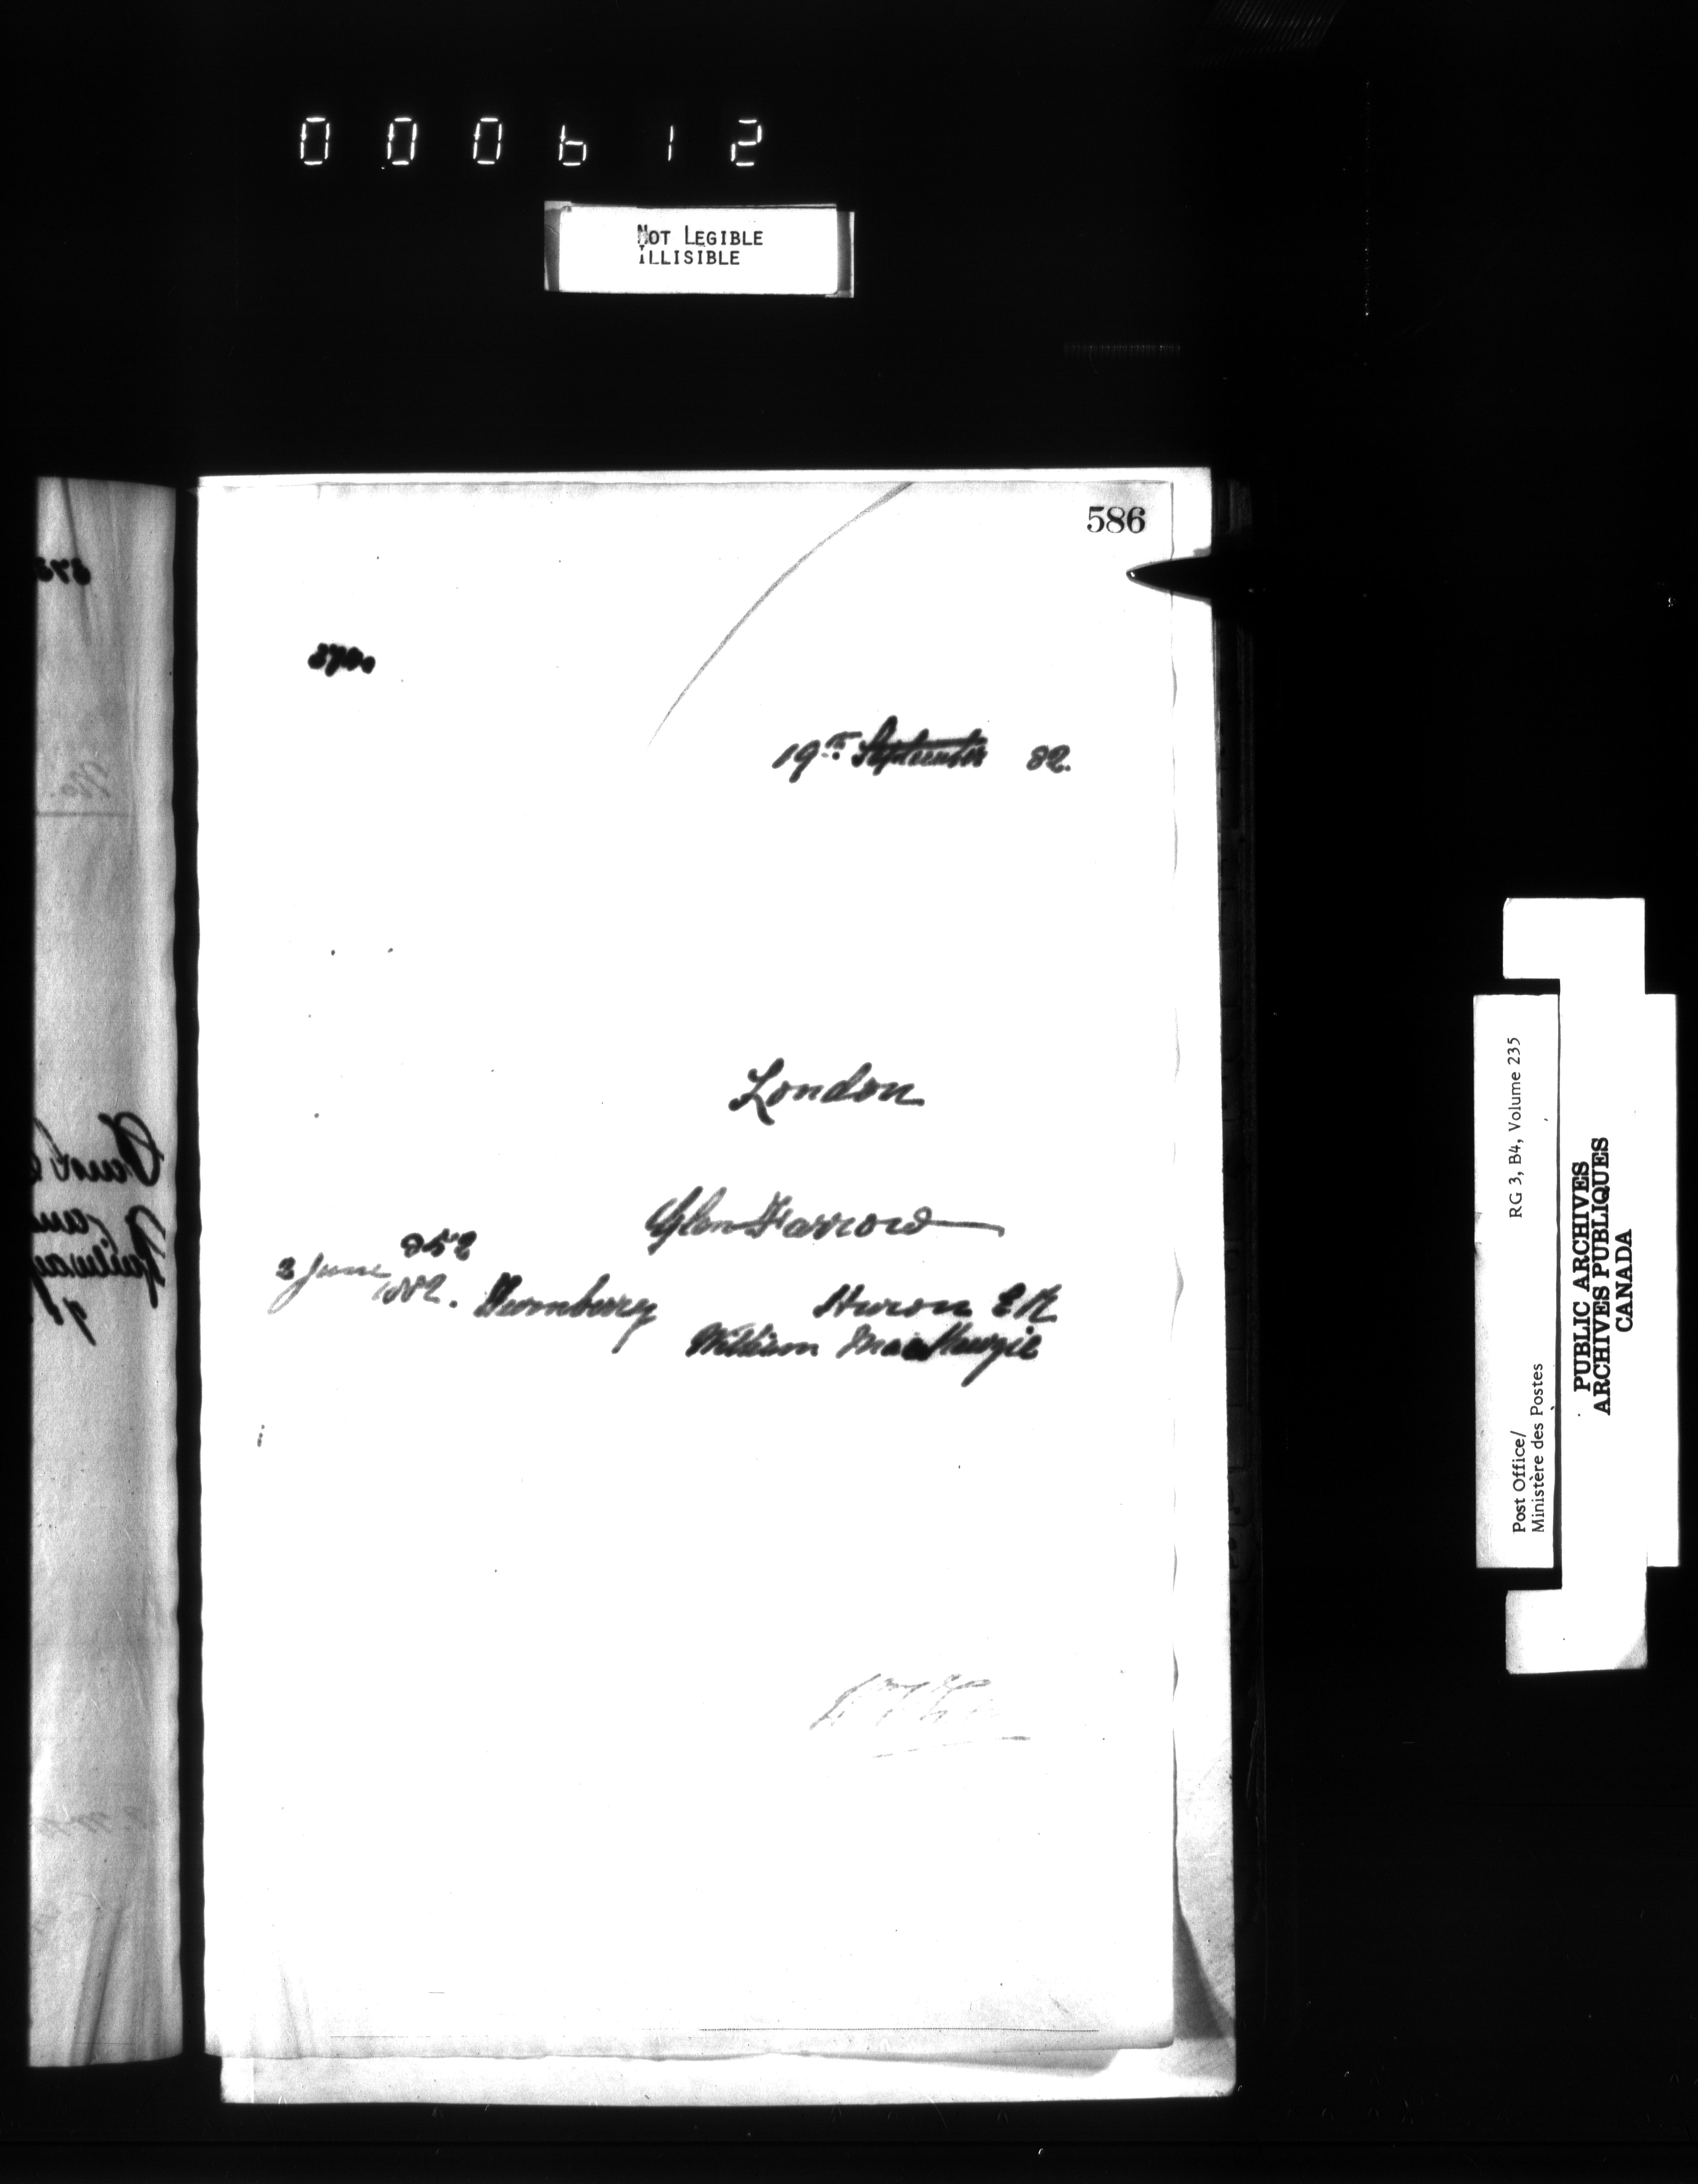 000612
NOT LEGIBLE
ILLISIBLE
586
19th September 82.
London
Glen Farrow
852
2 June 1882. Turnberry Huron E R
William MacKenzie
Post Office/
Ministère des Postes
RG 3, B4, Volume 235
PUBLIC ARCHIVES
ARCHIVES PUBLIQUES
CANADA